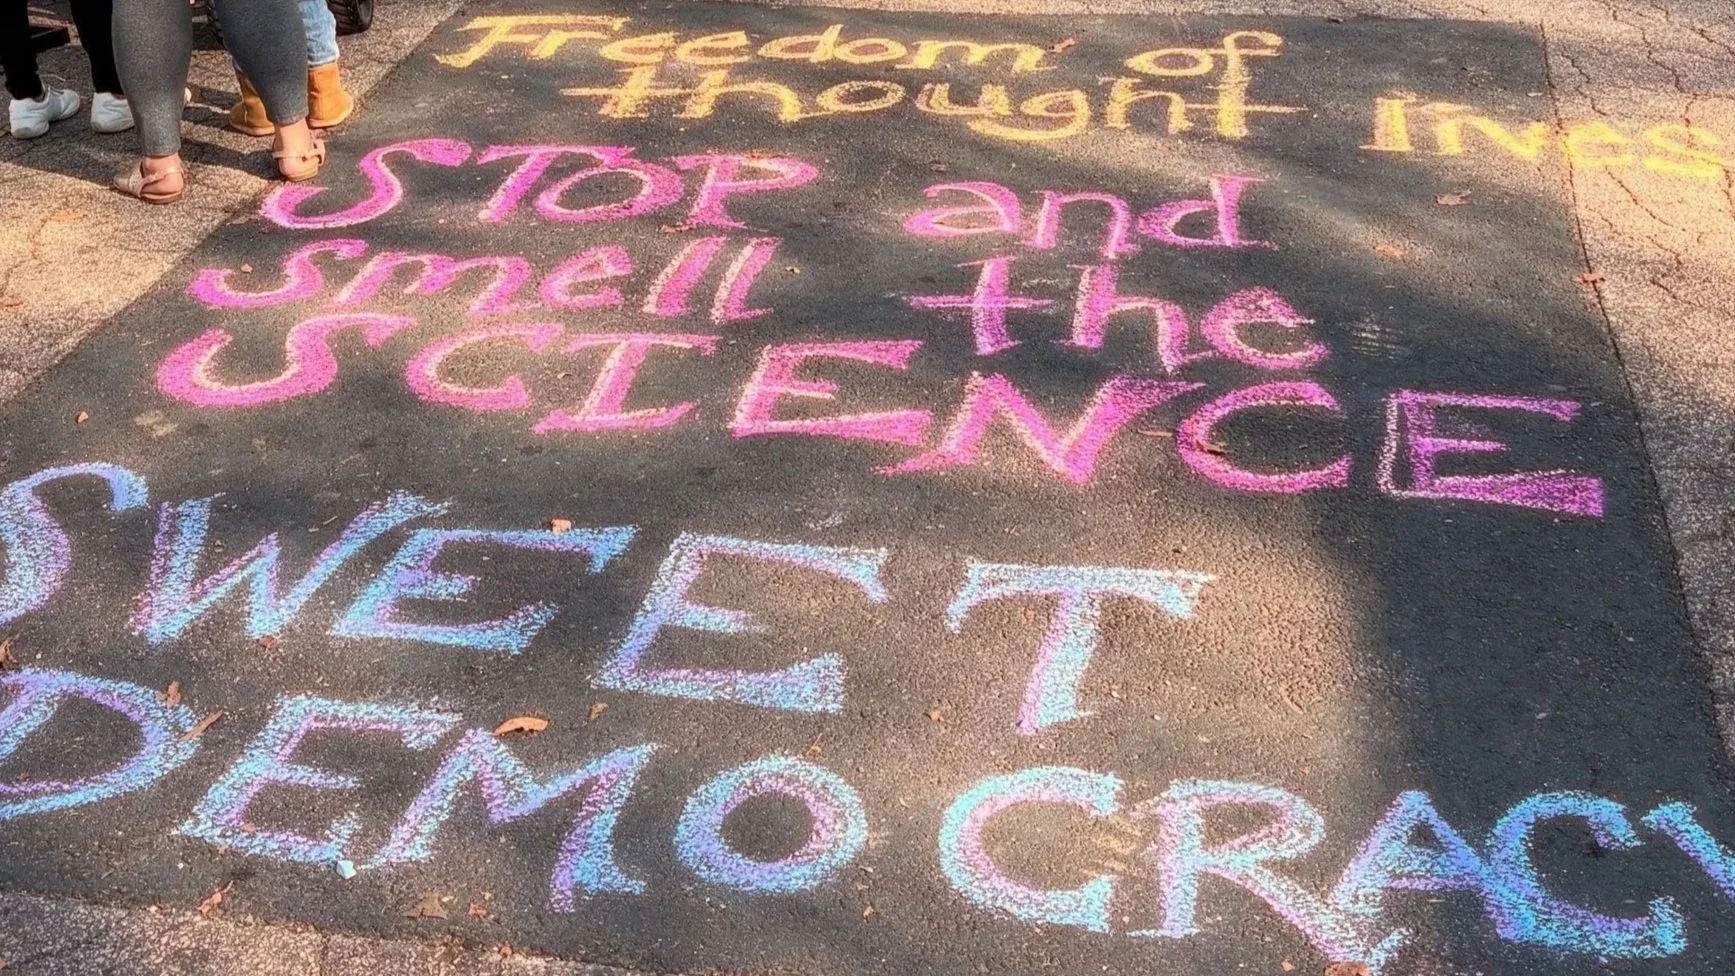 Freedom of
thought lives
STOP and
smell the
SCIENCE
SWEET
DEMOCRACY